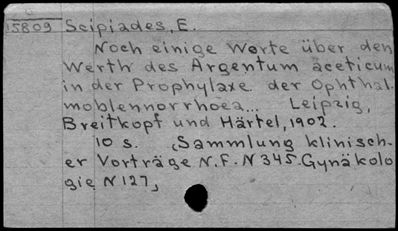 15809 Scipiades, E.
Noch einige Worte über den
Werth des Argentum aceticum
in der Prophylaxe der Ophthal-
moblennorrhoea... Leipzig,
Breitkopf und Härtel, 1902.
10 s. (Sammlung klinisch-
er Vorträge N.F. N 345. Gynäkolo
gie N 127,